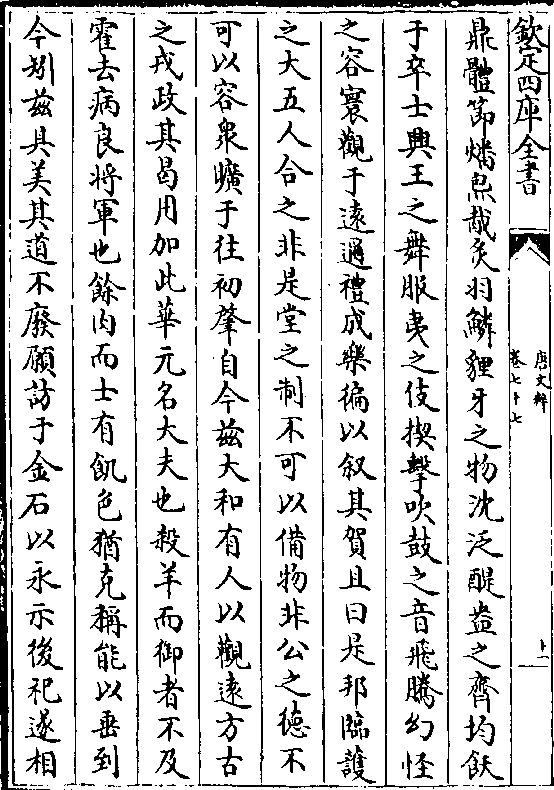 欽定四庫全書
唐文粹
卷七十七
十一
鼎體節燔炰胾炙羽鱗貍牙之物沈泛醍盎之齊均飫
于卒士興王之舞服夷之伎揳擊吹鼓之音飛騰幻怪
之容寰觀于遠邇禮成樂徧以叙其賀且曰是邦臨護
之大五人合之非是堂之制不可以備物非公之徳不
可以容衆曠于往初肇自今兹大和有人以觀逺方古
之戎政其曷用加此華元名大夫也殺羊而御者不及
霍去病良將軍也餘肉而士有飢色猶克稱能以垂到
今矧兹具美其道不廢願訪于金石以永示後祀遂相